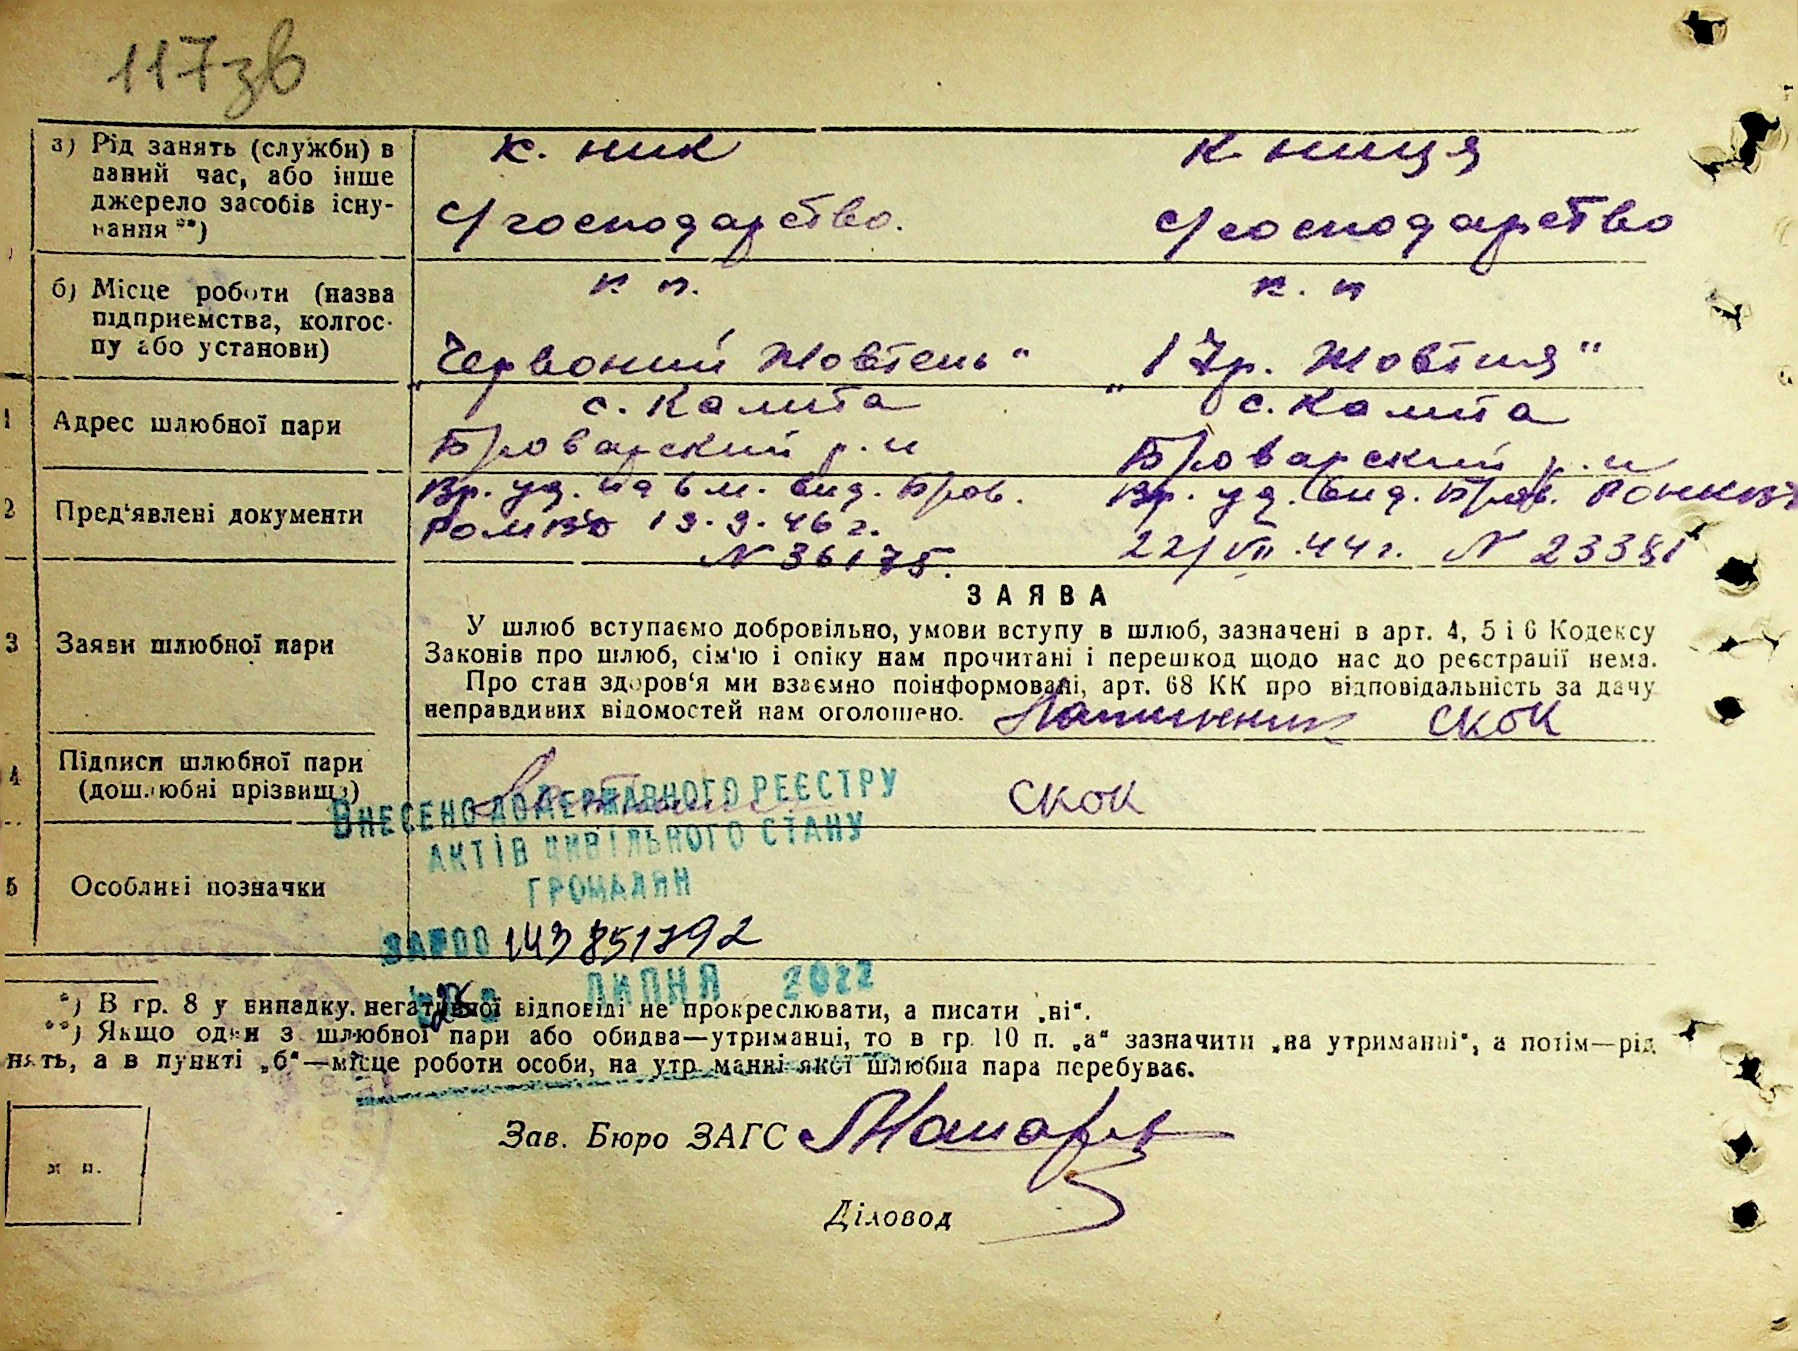 117зв
а) Рід занять (служби) в
даний час, або інше
джерело засобів існу-
вання **)
к. ник
с/господарство.
к ниця
с/господарство
б) Місце роботи (назва
підприємства, колгос-
пу або установи)
к п.
„Червоний Жовтень"
к. п
„17 р. Жовтня"
1 Адрес шлюбної пари
с. Калита
Броварский р. н
с. Калита
Броварский р. н
2 Пред'явлені документи
Вр. уд. вид. Бров.
19.9.46 г.
N 36175.
Вр. уд. вид. Бров.
22/VII.44 г. N 23381
3 Заяви шлюбної пари
ЗАЯВА
У шлюб вступаємо добровільно, умови вступу в шлюб, зазначені в арт. 4, 5 і 6 Кодексу
Законів про шлюб, сім'ю і опіку нам прочитані і перешкод щодо нас до реєстрації нема.
Про стан здоров'я ми взаємно поінформовані, арт. 68 КК про відповідальність за дачу
неправдивих відомостей нам оголошено.
Скок
4 Підписи шлюбної пари
(дошлюбні прізвища)
Скок
ВНЕСЕНО ДО ДЕРЖАВНОГО РЕЄСТРУ
АКТІВ ЦИВІЛЬНОГО СТАНУ
ГРОМАДЯН
5 Особливі позначки
ЗА №00 143851792
26 ЛИПНЯ 2022
*) В гр. 8 у випадку негативної відповіді не прокреслювати, а писати „ні".
**) Якщо один з шлюбної пари або обидва—утриманці, то в гр. 10 п. „а" зазначити „на утриманні", а потім—рід
нять, а в пункті „б"—місце роботи особи, на утр манні якої шлюбна пара перебуває.
Зав. Бюро ЗАГС
м п.
Діловод